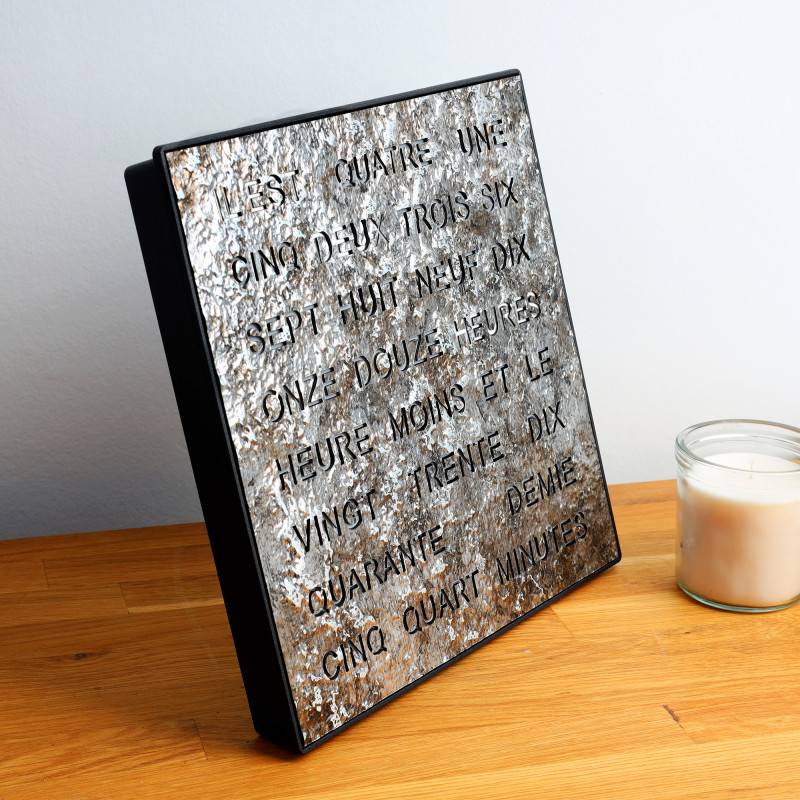 IL EST QUATRE UNE
CINQ DEUX TROIS SIX
SEPT HUIT NEUF DIX
ONZE DOUZE HEURES
HEURE MOINS ET LE
VINGT TRENTE DIX
QUARANTE DEMIE
CINQ QUART MINUTES